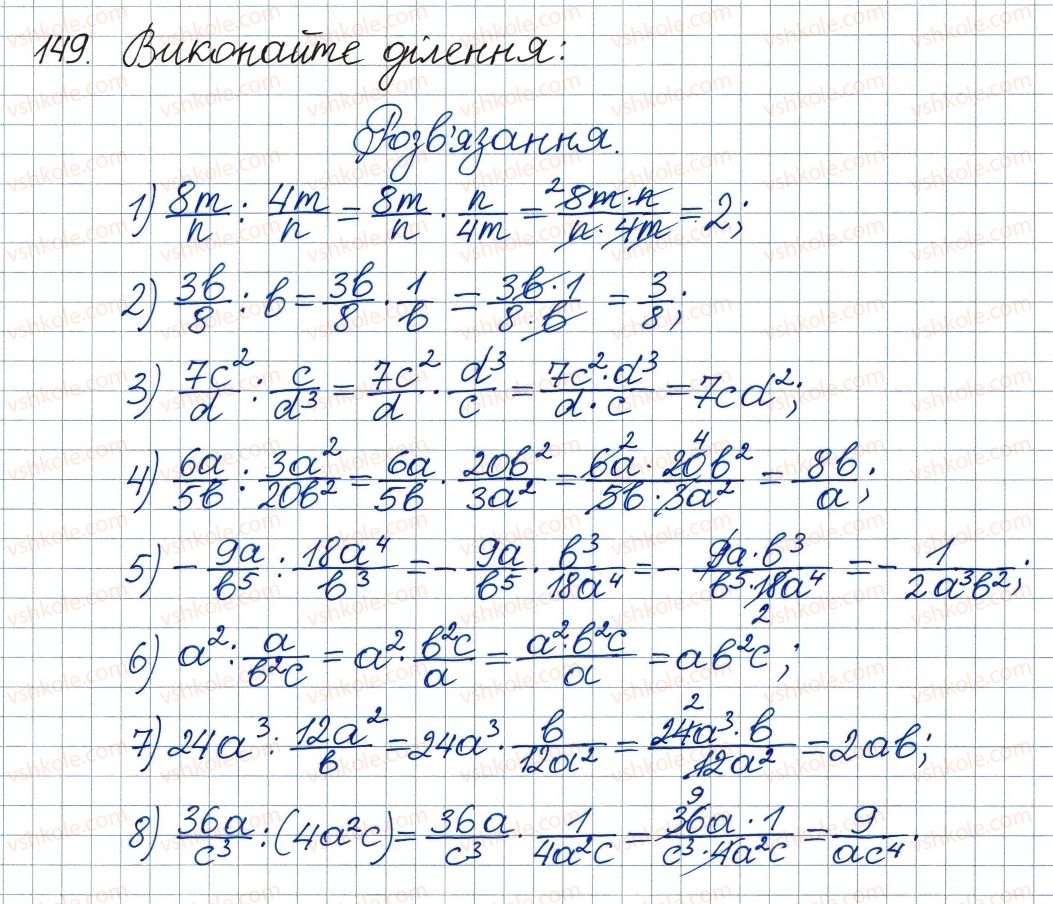 149. Виконайте ділення:
Розв'язання.
1) 8m/n : 4m/n = 8m/n · n/4m = 2 8m·n/n·4m = 2;
2) 3b/8 : b = 3b/8 · 1/b = 3b·1/8·b = 3/8;
3) 7c²/d : c/d³ = 7c²/d · d³/c = 7c²·d³/d·c = 7cd²;
4) 6a/5b : 3a²/20b² = 6a/5b · 20b²/3a² = 2 4 6a·20b²/5b·3a² = 8b/a;
5) -9a/b⁵ : 18a⁴/b³ = -9a/b⁵ · b³/18a⁴ = -9a·b³/b⁵·18a⁴ 2 = -1/2a³b²;
6) a² : a/b²c = a² · b²c/a = a²·b²c/a = ab²c;
7) 24a³ : 12a²/b = 24a³ · b/12a² = 2 24a³·b/12a² = 2ab;
8) 36a/c³ : (4a²c) = 36a/c³ · 1/4a²c = 9 36a·1/c³·4a²c = 9/ac⁴.